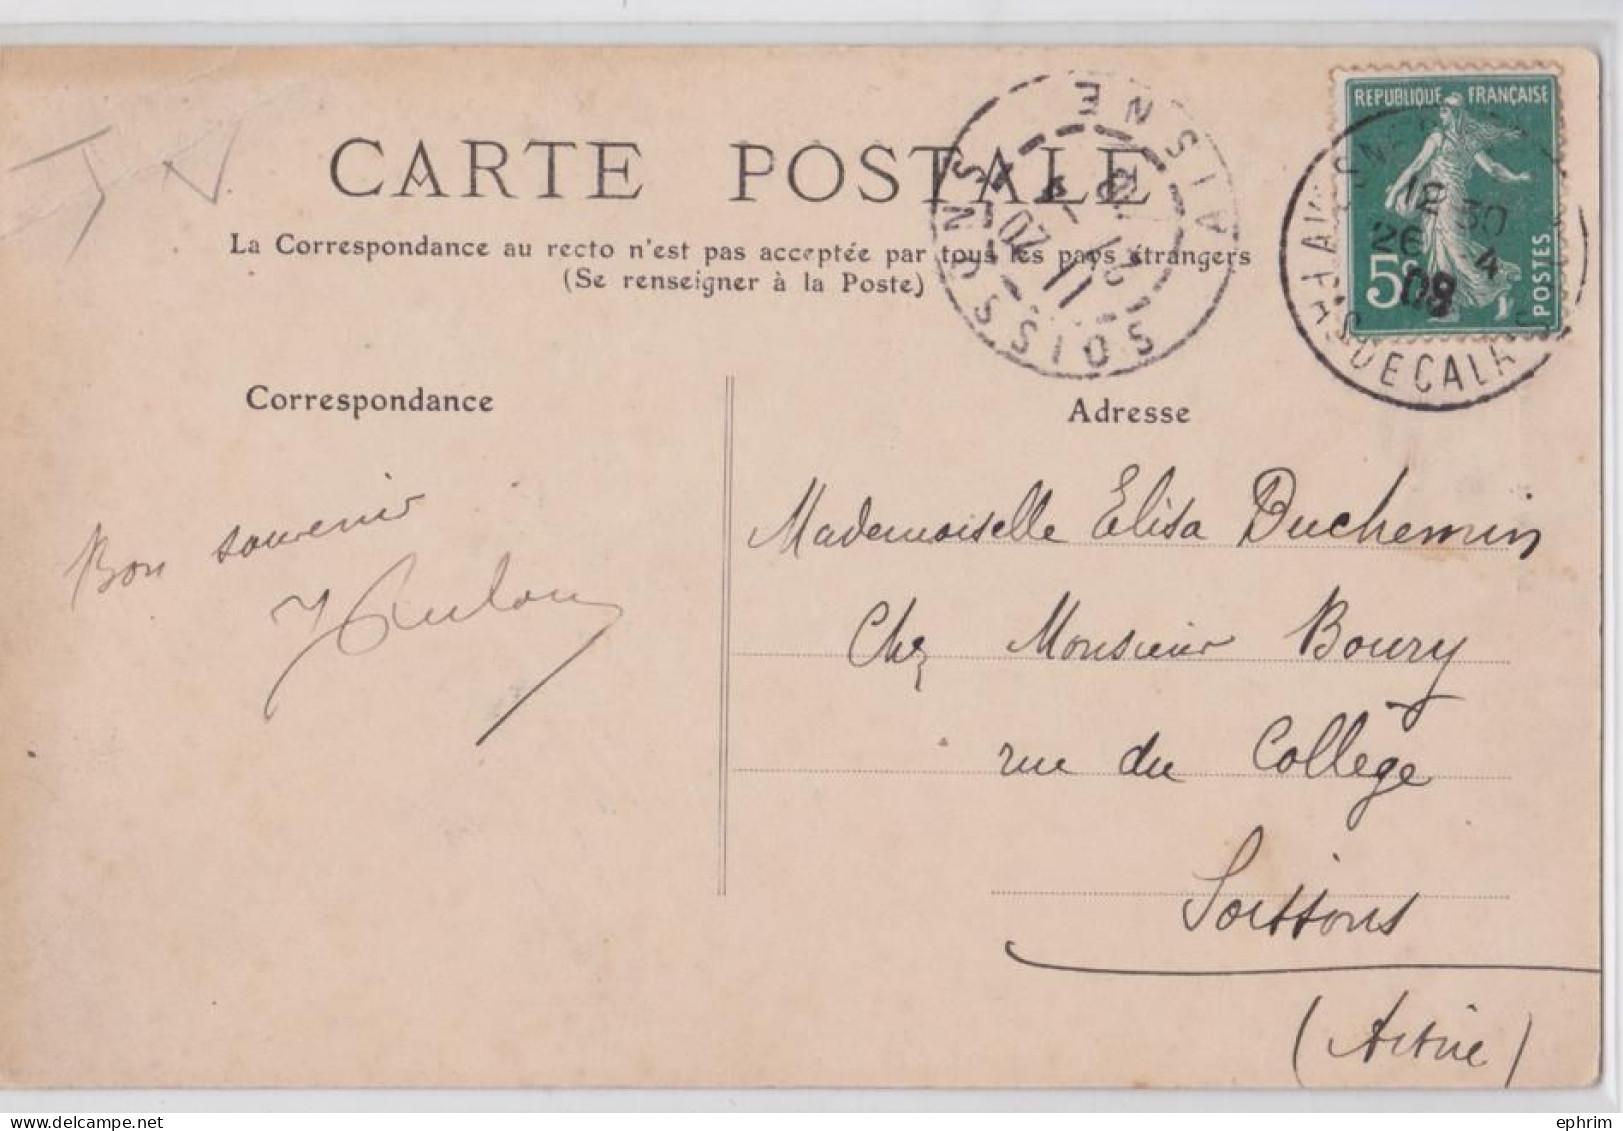 CARTE POSTALE
La Correspondance au recto n'est pas acceptée par tous les pays étrangers
(Se renseigner à la Poste)
SOISSONS AISNE
REPUBLIQUE FRANÇAISE
5c POSTES
12 30
26 4
09
PAS DE CALAIS
Correspondance
Adresse
Bon souvenir
Mademoiselle Elisa Duchemin
Chez Monsieur Boury
rue du Collège
Soissons
(Aisne)
ephrim